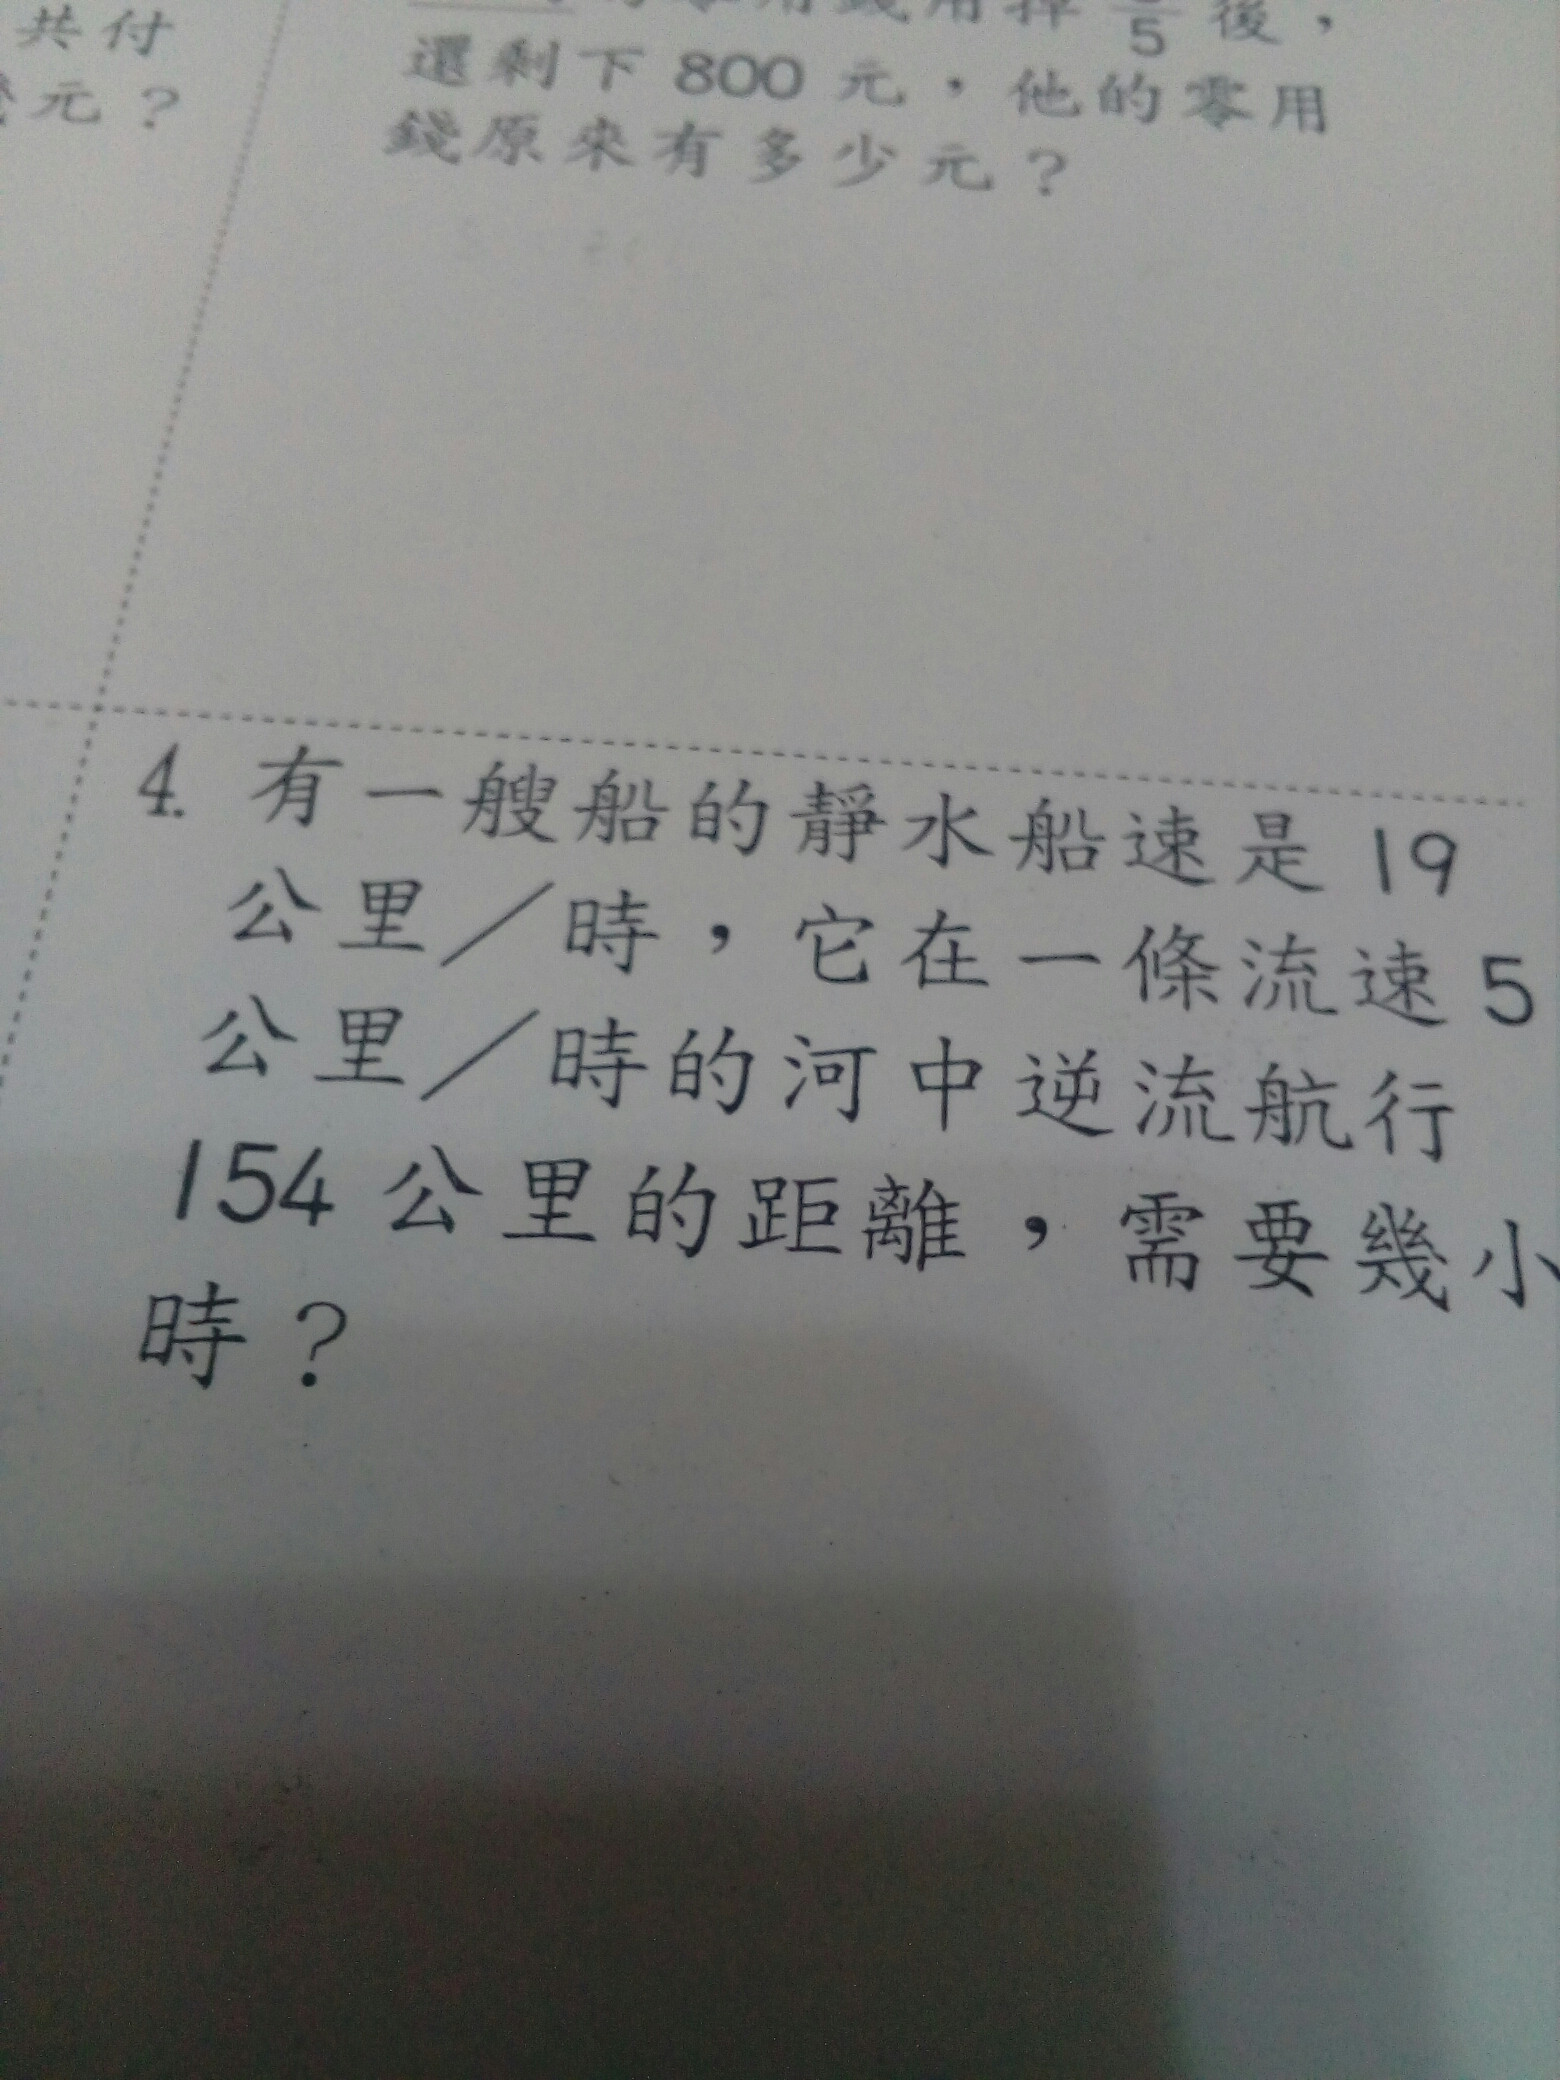 共付
元？
用掉 5 後，
還剩下 800 元，他的零用
錢原來有多少元？
4. 有一艘船的靜水船速是 19
公里／時，它在一條流速 5
公里／時的河中逆流航行
154 公里的距離，需要幾小
時？